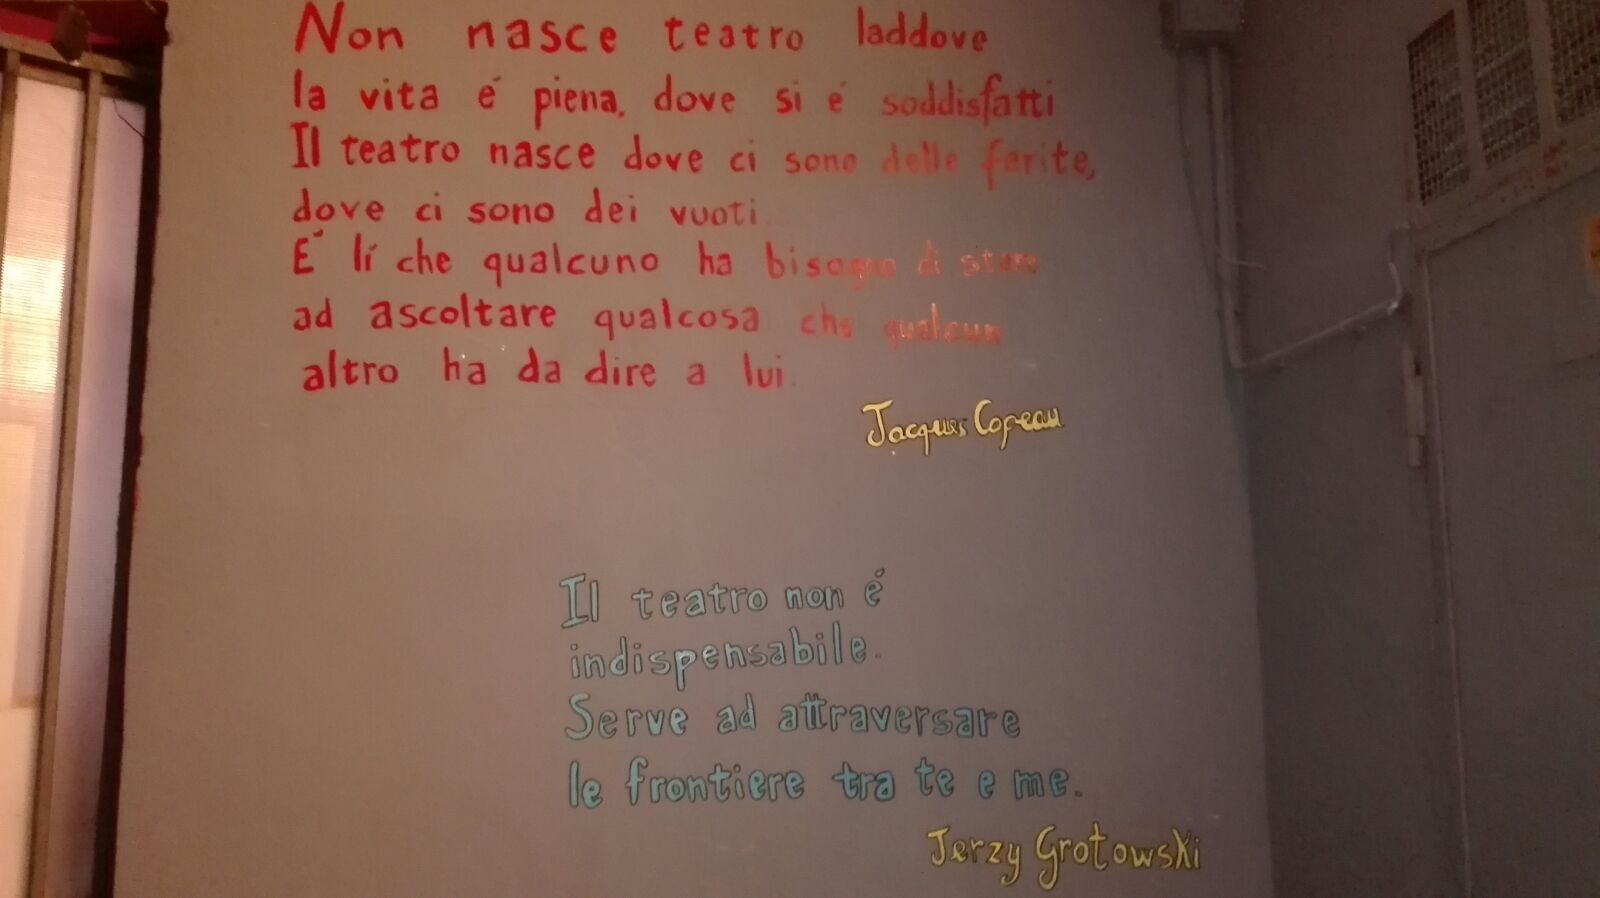 Non nasce teatro laddove
la vita é piena, dove si é soddisfatti
Il teatro nasce dove ci sono delle ferite,
dove ci sono dei vuoti...
É lí che qualcuno ha bisogno di stare
ad ascoltare qualcosa che qualcun
altro ha da dire a lui.
Jacques Copeau
Il teatro non é
indispensabile.
Serve ad attraversare
le frontiere tra te e me.
Jerzy Grotowski